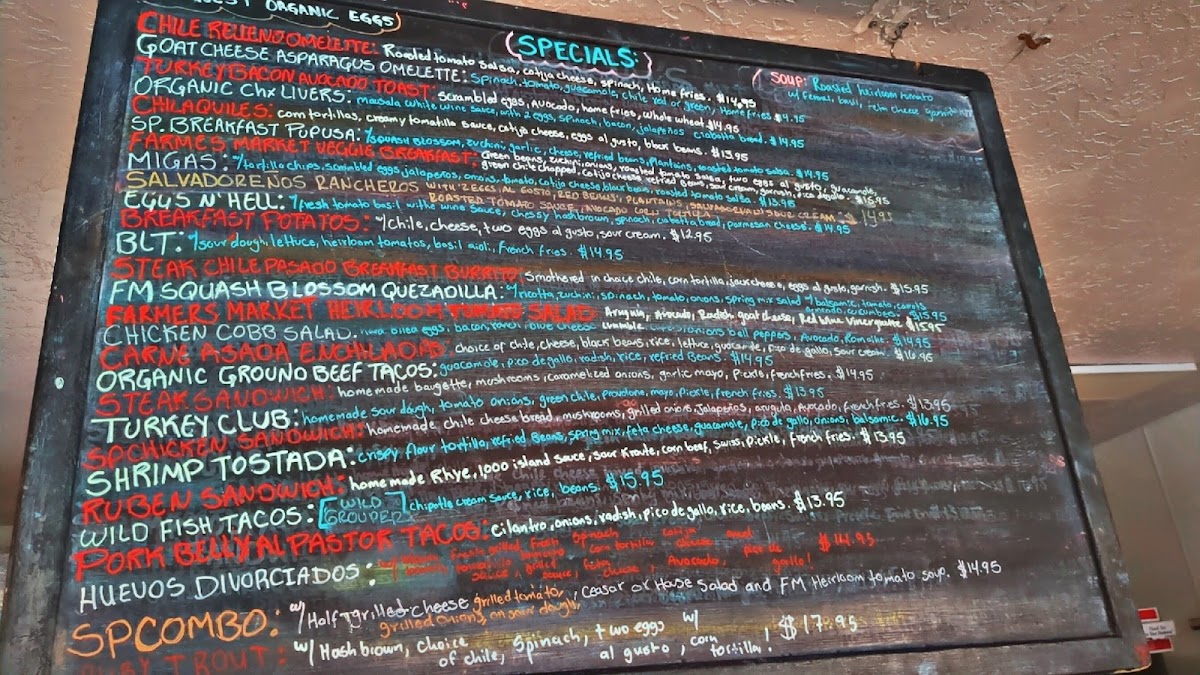 ORGANIC EGGS
SPECIALS:
SOUP: Roasted heirloom tomato
w/ fennel, basil,
CHILE RELLENO OMELETTE: Roasted tomato salsa, cotija cheese, spinach, Home fries. $14.95
GOAT CHEESE ASPARAGUS OMELETTE: Spinach, tomato, guacamole, chile red or green, Home fries
TURKEY BACON AVOCADO TOAST: Scrambled eggs, Avocado, home fries, whole wheat. $14.95
ORGANIC Chx LIVERS: masala white wine sauce, with 2 eggs, spinach, bacon, jalapeños ciabatta bread. $14.95
CHILAQUILES: corn tortillas, creamy tomatillo sauce, cotija cheese, eggs al gusto, black beans. $13.95
SP. BREAKFAST PUPUSA: w/ SQUASH BLOSSOM, zuchini, garlic, cheese, refried beans, Plantains, roasted tomato salsa. $14.95
FARMES MARKET VEGGIE BREAKFAST: Green beans, zuchini, onions, roasted tomato salsa, two eggs al gusto, guacamole,
green chile chopped, cotija cheese, refried beans, sour cream, garnish, pico de gallo. $15.95
MIGAS: w/ tortilla chips, scrambled eggs, jalapeños, onions, tomato, cotija cheese, black beans, roasted tomato salsa. $13.95
SALVADOREÑOS RANCHEROS WITH 2 EGGS AL GOSTO, RED BEANS, PLANTAINS, SALVADOREAN SOUR CREAM $14.95
ROASTED TOMATO SAUCE, AVOCADO CORN TORTILLA
EGGS N' HELL: w/ fresh tomato basil withe wine sauce, chessy hashbrown, spinach, ciabatta bread, parmesan cheese. $14.95
BREAKFAST POTATOS: w/ chile, cheese, two eggs al gusto, sour cream. $12.95
BLT: w/ sour dough, lettuce, heirloom tomatos, basil aioli, French fries. $14.95
STEAK CHILE PASADO BREAKFAST BURRITO: Smothered in choice chile, corn tortilla, jack cheese, eggs al gusto, garnish. $15.95
FM SQUASH BLOSSOM QUEZADILLA: w/ ricotta, zuchini, spinach, tomato, onions, spring mix salad w/ balsamic, tomato, carrots,
avocado, cucumbers. $15.95
FARMERS MARKET HEIRLOOM TOMATO SALAD: Arugula, Avocado, Radish, goat cheese, Red blue Vinergratte. $15.95
CHICKEN COBB SALAD: eggs, bacon, ranch, blue cheese crumble onions bell peppers, Avocado, Romaine. $14.95
CARNE ASADA ENCHILADAS: choice of chile, cheese, black beans, rice, lettuce, guacamole, pico de gallo, sour cream. $16.95
ORGANIC GROUND BEEF TACOS: guacamole, pico de gallo, radish, rice, refried Beans. $14.95
STEAK SANDWICH: homemade baugette, mushrooms, caramelized onions, garlic mayo, Pickle, french fries. $14.95
TURKEY CLUB: homemade sour dough, tomato onions, green chile, provolone, mayo, pickle, french fries. $13.95
SP CHICKEN SANDWICH: homemade, chile cheese bread, mushrooms, grilled onions, jalapeños, arugula, Avocado, french fries. $13.95
SHRIMP TOSTADA: crispy flour tortilla, refried Beans, spring mix, feta cheese, guacamole, pico de gallo, onions, balsamic. $16.95
RUBEN SANDWICH: homemade Rhye, 1000 island sauce, Sour Kraute, corn beef, swiss, pickle, french fries. $13.95
WILD FISH TACOS: [WILD GROUPER] chipotle cream sauce, rice, beans. $15.95
PORK BELLY AL PASTOR TACOS: cilantro, onions, radish, pico de gallo, rice, beans. $13.95
HUEVOS DIVORCIADOS: w/ fresh grilled fresh Spinach cotija and $14.95
tomatillo grilled tomato, corn tortilla, cheese
sauce, sauce, feta cheese, Avocado, pico de gallo!
SP COMBO: w/ Half grilled cheese grilled tomato, ceasar or House Salad and FM Heirloom tomato soup. $14.95
grilled onions, on sour dough,
RUBY TROUT: w/ Hashbrown, choice of chile, Spinach, two eggs al gusto, w/ corn tortilla! $17.95